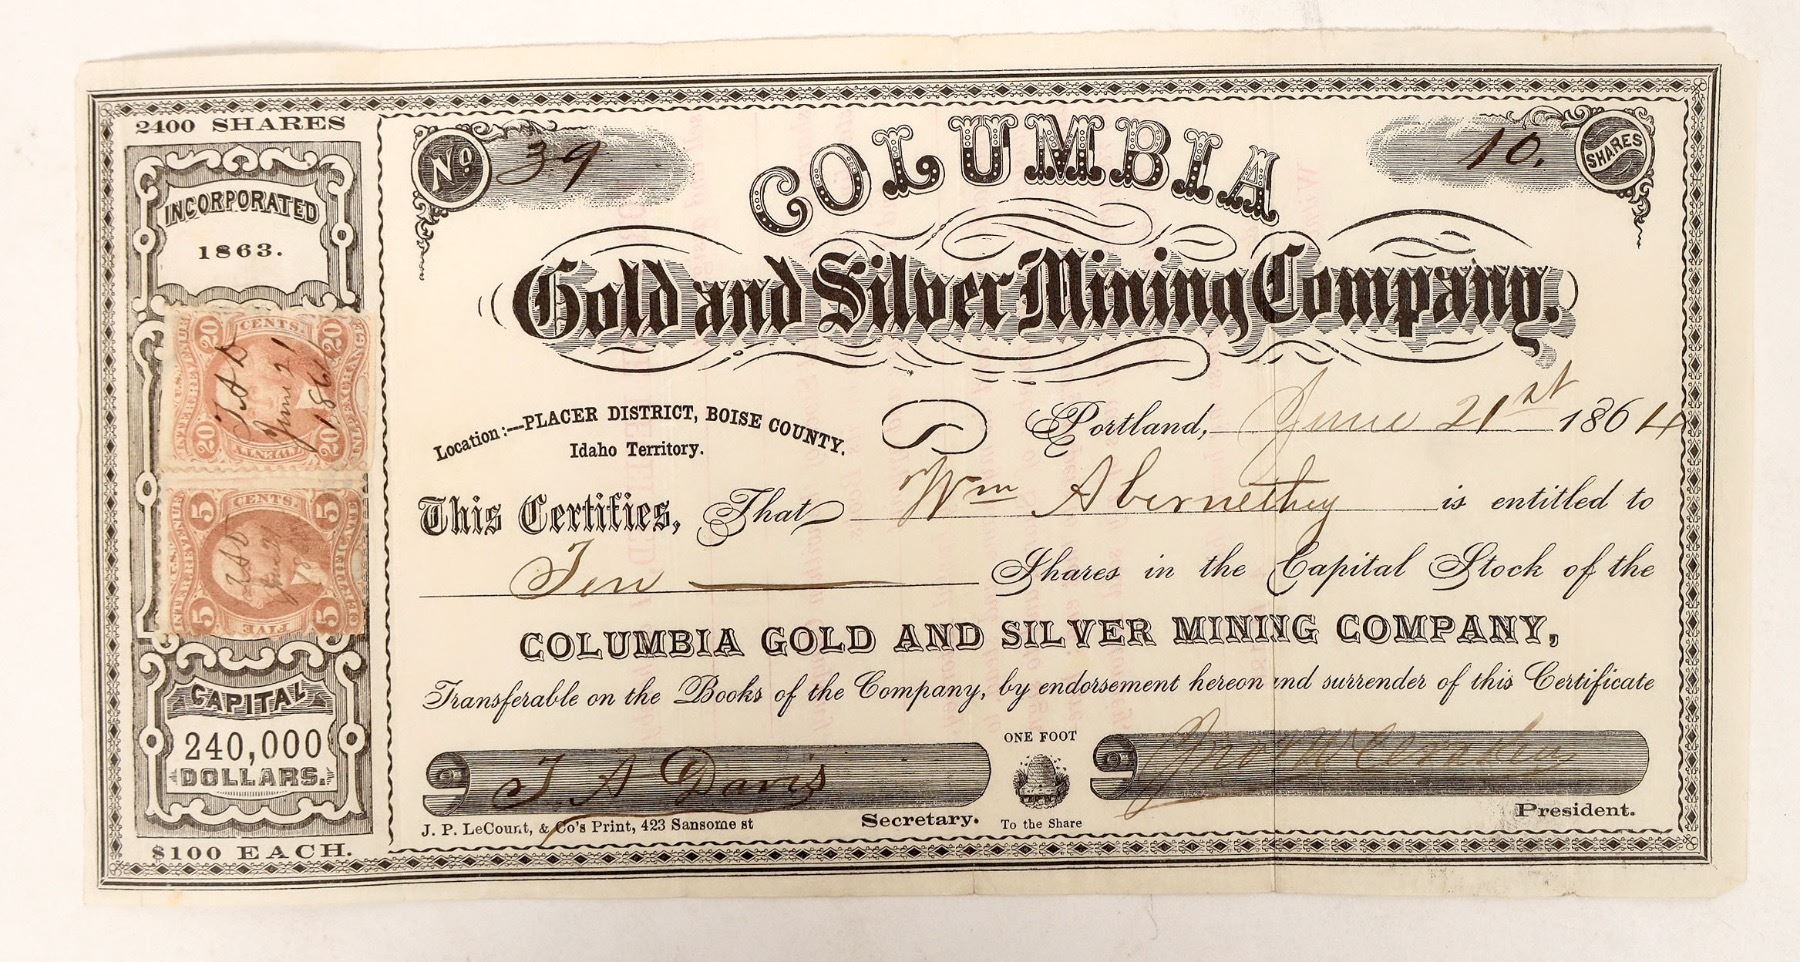 2400 SHARES
INCORPORATED
1863.
20 CENTS 20
U.S. INTER. REVENUE
INLAND EXCHANGE
T A D
June 21
1864
20 TWENTY 20
5 CENTS 5
INTER. REVENUE U.S.
CERTIFICATE
TAD
June 2
18
5 FIVE 5
CAPITAL
240,000
DOLLARS.
$100 EACH.
No. 39
10. SHARES
COLUMBIA
Gold and Silver Mining Company.
Location:—PLACER DISTRICT, BOISE COUNTY.
Idaho Territory.
Portland, June 21st 1864
This Certifies, That Wm Abernethey is entitled to
Ten Shares in the Capital Stock of the
COLUMBIA GOLD AND SILVER MINING COMPANY,
Transferable on the Books of the Company, by endorsement hereon and surrender of this Certificate
T. A Davis
Secretary.
ONE FOOT
To the Share
Jno W
President.
J. P. LeCount, & Co's Print, 423 Sansome st